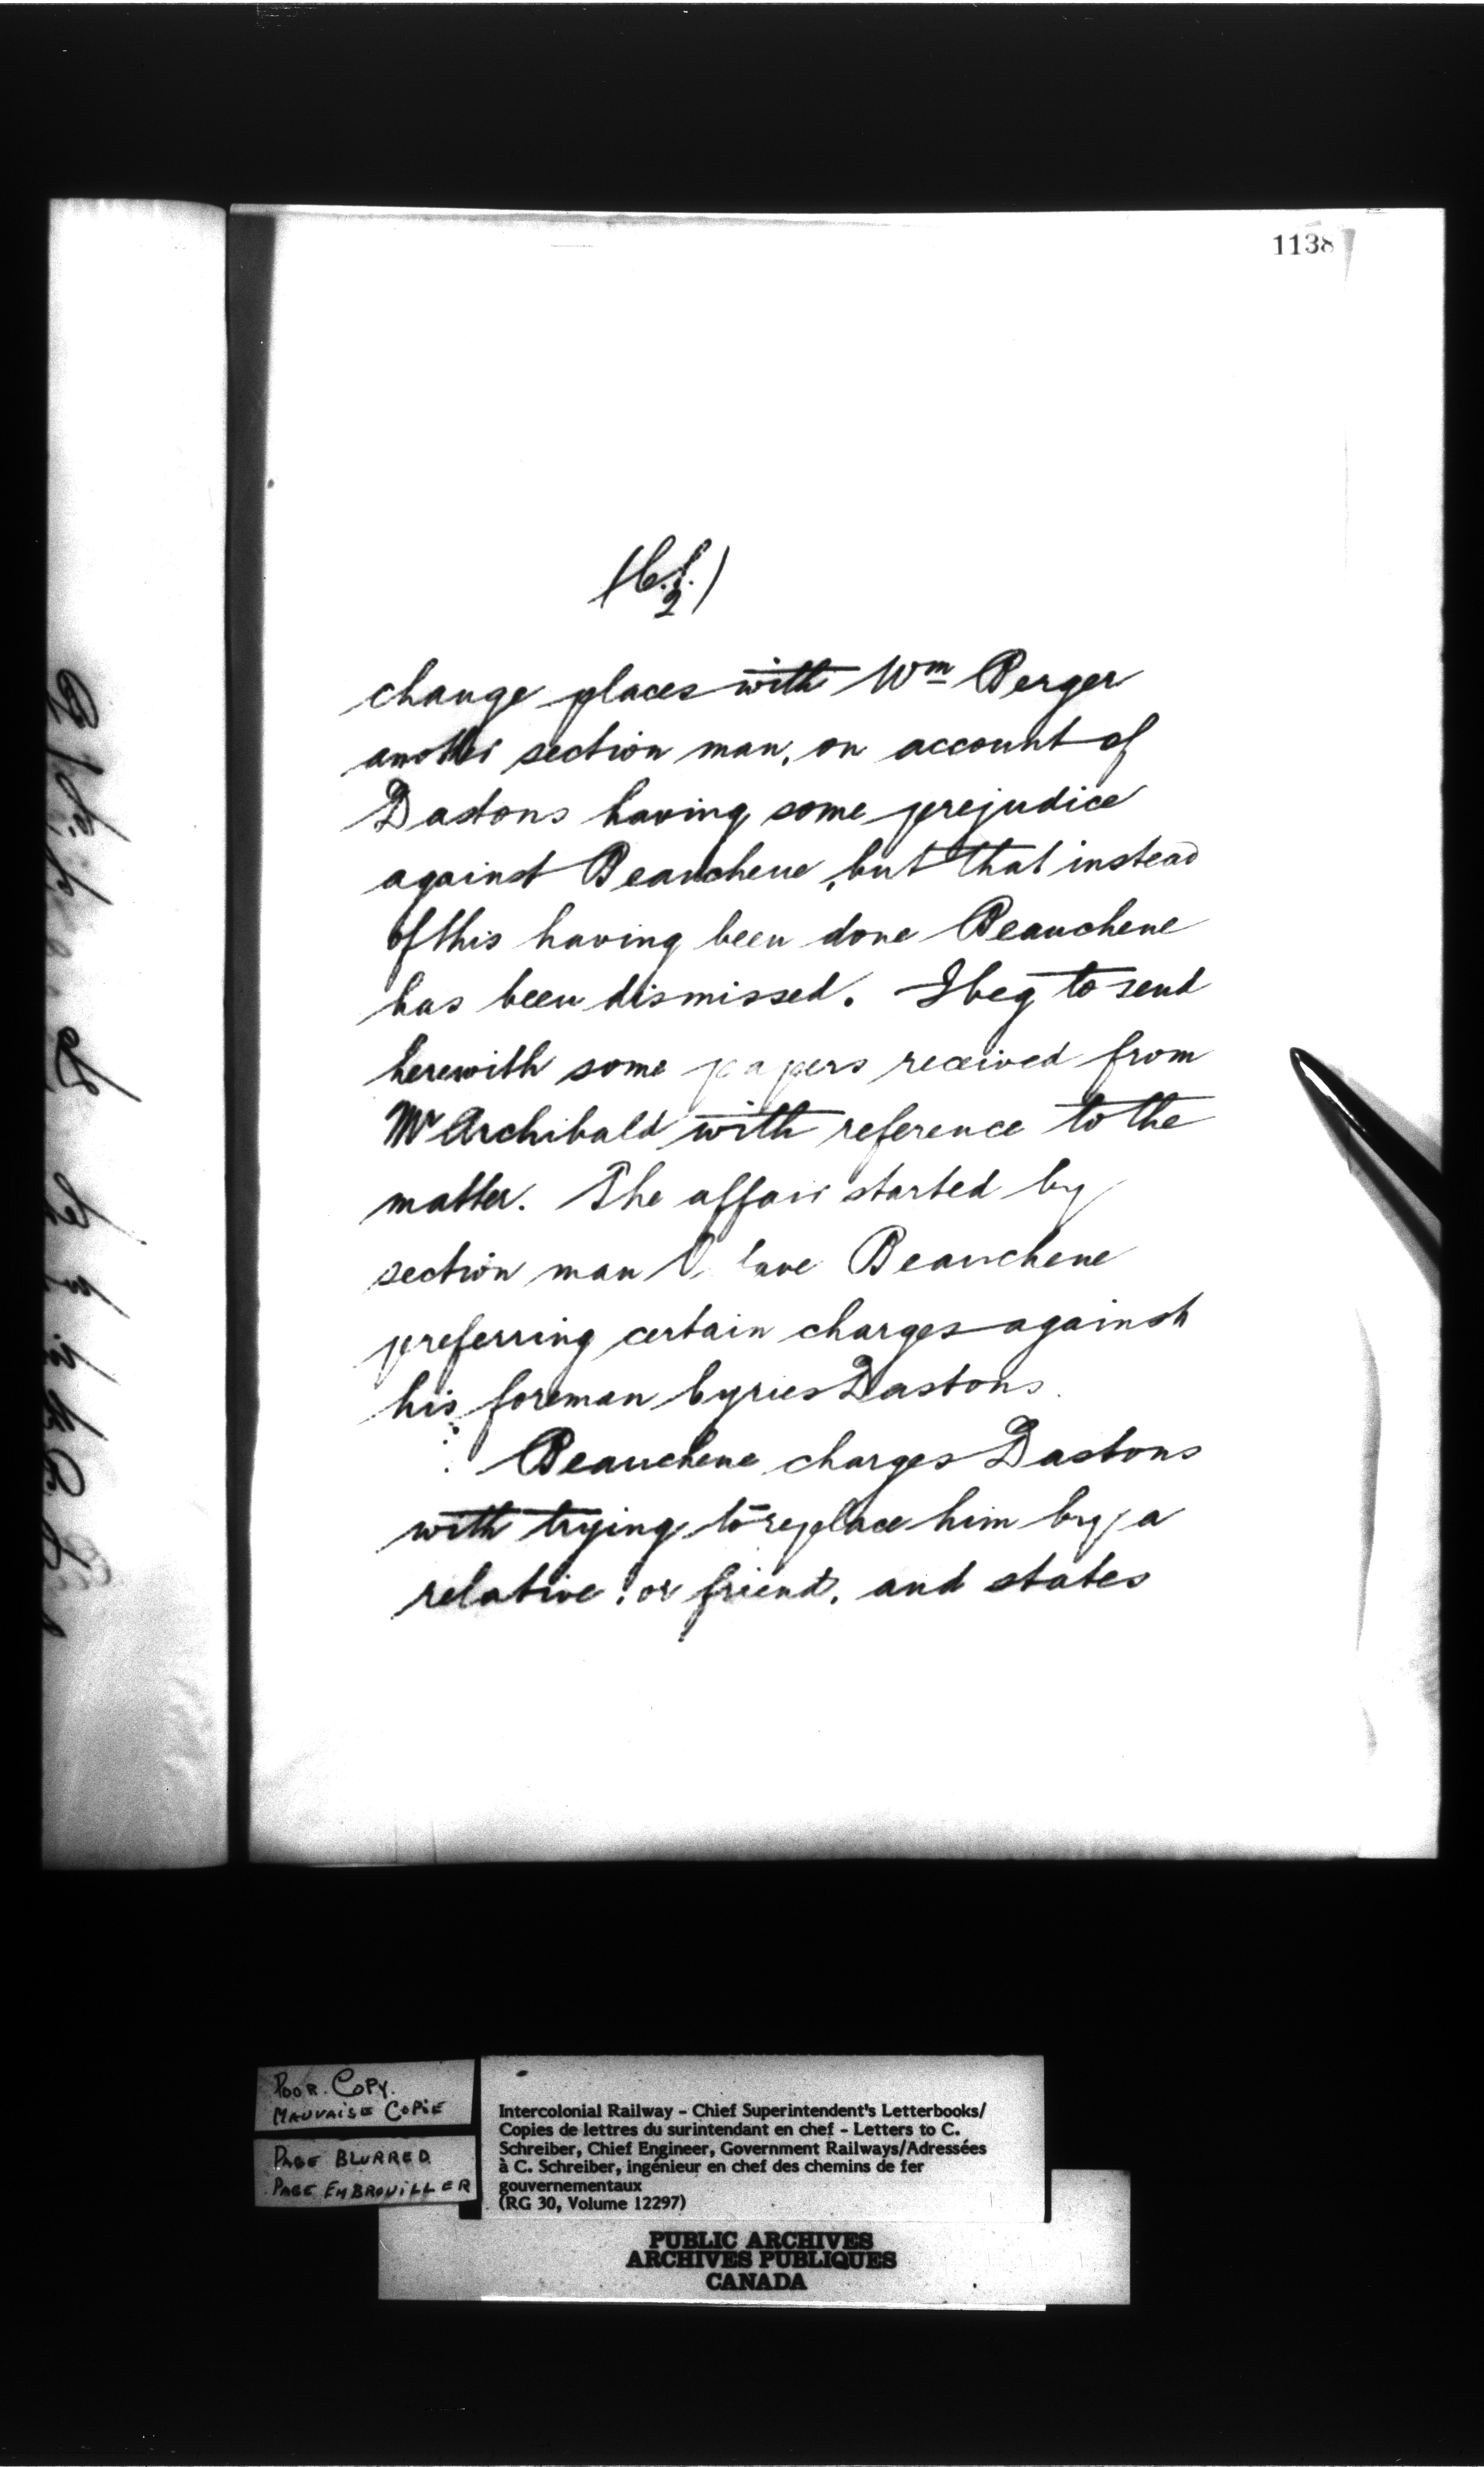 1138
(C.S.
2)
change places with Wm Berger
another section man, on account of
Dastons having some prejudice
against Beauchene, but that instead
of this having been done Beauchene
has been dismissed. I beg to send
herewith some papers received from
Mr Archibald with reference to the
matter. The affair started by
section man Beauchene
preferring certain charges against
his foreman Cyrus Dastons.
Beauchene charges Dastons
with trying to replace him by a
relative or friend, and states
POOR COPY.
MAUVAISE COPIE
PAGE BLURRED
PAGE EMBROUILLER
Intercolonial Railway – Chief Superintendent's Letterbooks/
Copies de lettres du surintendant en chef – Letters to C.
Schreiber, Chief Engineer, Government Railways/Adressées
à C. Schreiber, ingénieur en chef des chemins de fer
gouvernementaux
(RG 30, Volume 12297)
PUBLIC ARCHIVES
ARCHIVES PUBLIQUES
CANADA